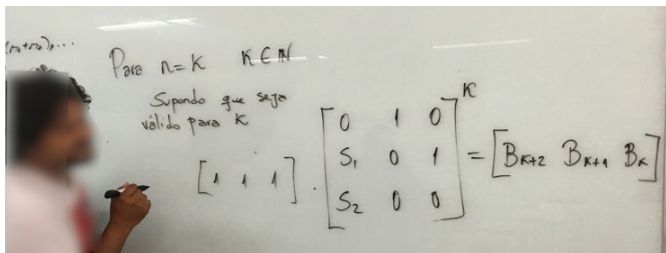 (m₁+m₂),...
Para n=K K∈ℕ
Supondo que seja
válido para K
[1 1 1] . [0 1 0
S₁ 0 1
S₂ 0 0]^K = [B_{K+2} B_{K+1} B_K]